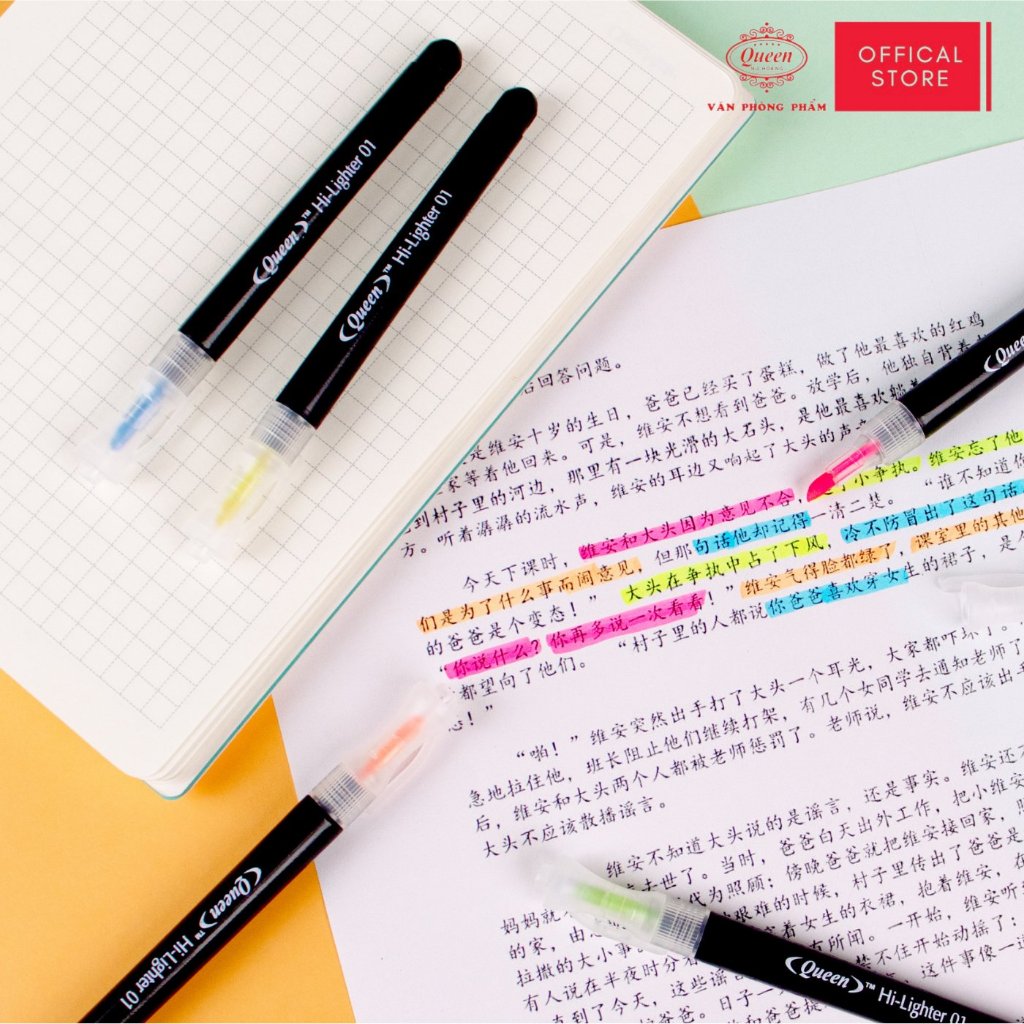 Queen
NỮ HOÀNG
VĂN PHÒNG PHẨM
OFFICAL
STORE
Queen™ Hi-Lighter 01
Queen™ Hi-Lighter 01
Queen
后回答问题。
是维安十岁的生日，爸爸已经买了蛋糕，做了他最喜欢的红鸡
家等着他回来。可是，维安不想看到爸爸。放学后，他独自背着
到村子里的河边，那里有一块光滑的大石头，是他最喜欢躺
方。听着潺潺的流水声，维安的耳边又响起了大头的声
今天下课时，维安和大头因为意见不合，了小争执。维安忘了他
们是为了什么事而闹意见，但那句话他却记得一清二楚。“谁不知道你
的爸爸是个变态！”大头在争执中占了下风，冷不防冒出了这句话
“你说什么？你再多说一次看看！”维安气得脸都绿了，课室里的其他
都望向了他们。“村子里的人都说你爸爸喜欢穿女生的裙子，是
态！”
“啪！”维安突然出手打了大头一个耳光，大家都吓坏了。
急地拉住他，班长阻止他们继续打架，有几个女同学去通知老师了
后，维安和大头两个人都被老师惩罚了。老师说，维安不应该出手
大头不应该散播谣言。
维安不知道大头说的是谣言，还是事实。维安还
去世了。当时，爸爸白天出外工作，把小维安
妈妈就 代为照顾；傍晚爸爸就把维安接回家，
的家，由 艰难的时候，村子里传出了爸爸是
拉撒的大小事 穿着女生的衣裙，抱着维安，在
有人说在半夜时分 有所闻。一开始，维安听
直到了今天，这些谣 禁不住开始动摇了：
和爸爸 日子一 爸爸提 这件事像一
Queen™ Hi-Lighter 01
Queen™ Hi-Lighter 01